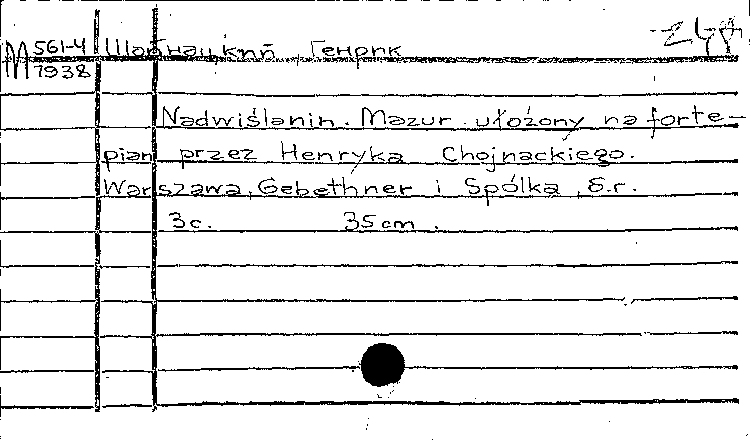 М 561-4 1938 Шабнацкий, Генрик
Nadwiślanin. Mazur ułożony na forte-
pian przez Henryka Chojnackiego.
Warszawa, Gebethner i Spółka, s.r.
3c. 35cm.